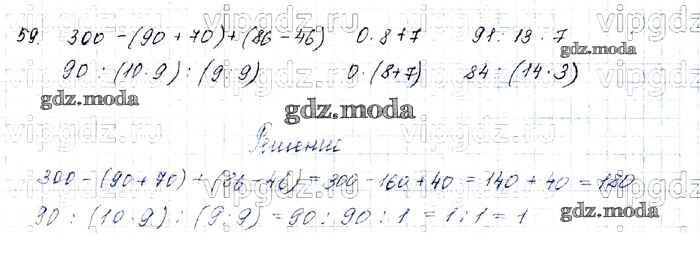 59. 300 - (90 + 70) + (86 - 46) 0 · 8 + 7 91 : 13 · 7
90 : (10 · 9) : (9 : 9) 0 · (8 + 7) 84 : (14 · 3)
Решение
300 - (90 + 70) + (86 - 46) = 300 - 160 + 40 = 140 + 40 = 180
90 : (10 · 9) : (9 : 9) = 90 : 90 : 1 = 1 : 1 = 1
gdz.moda
gdz.moda
gdz.moda
gdz.moda
gdz.moda